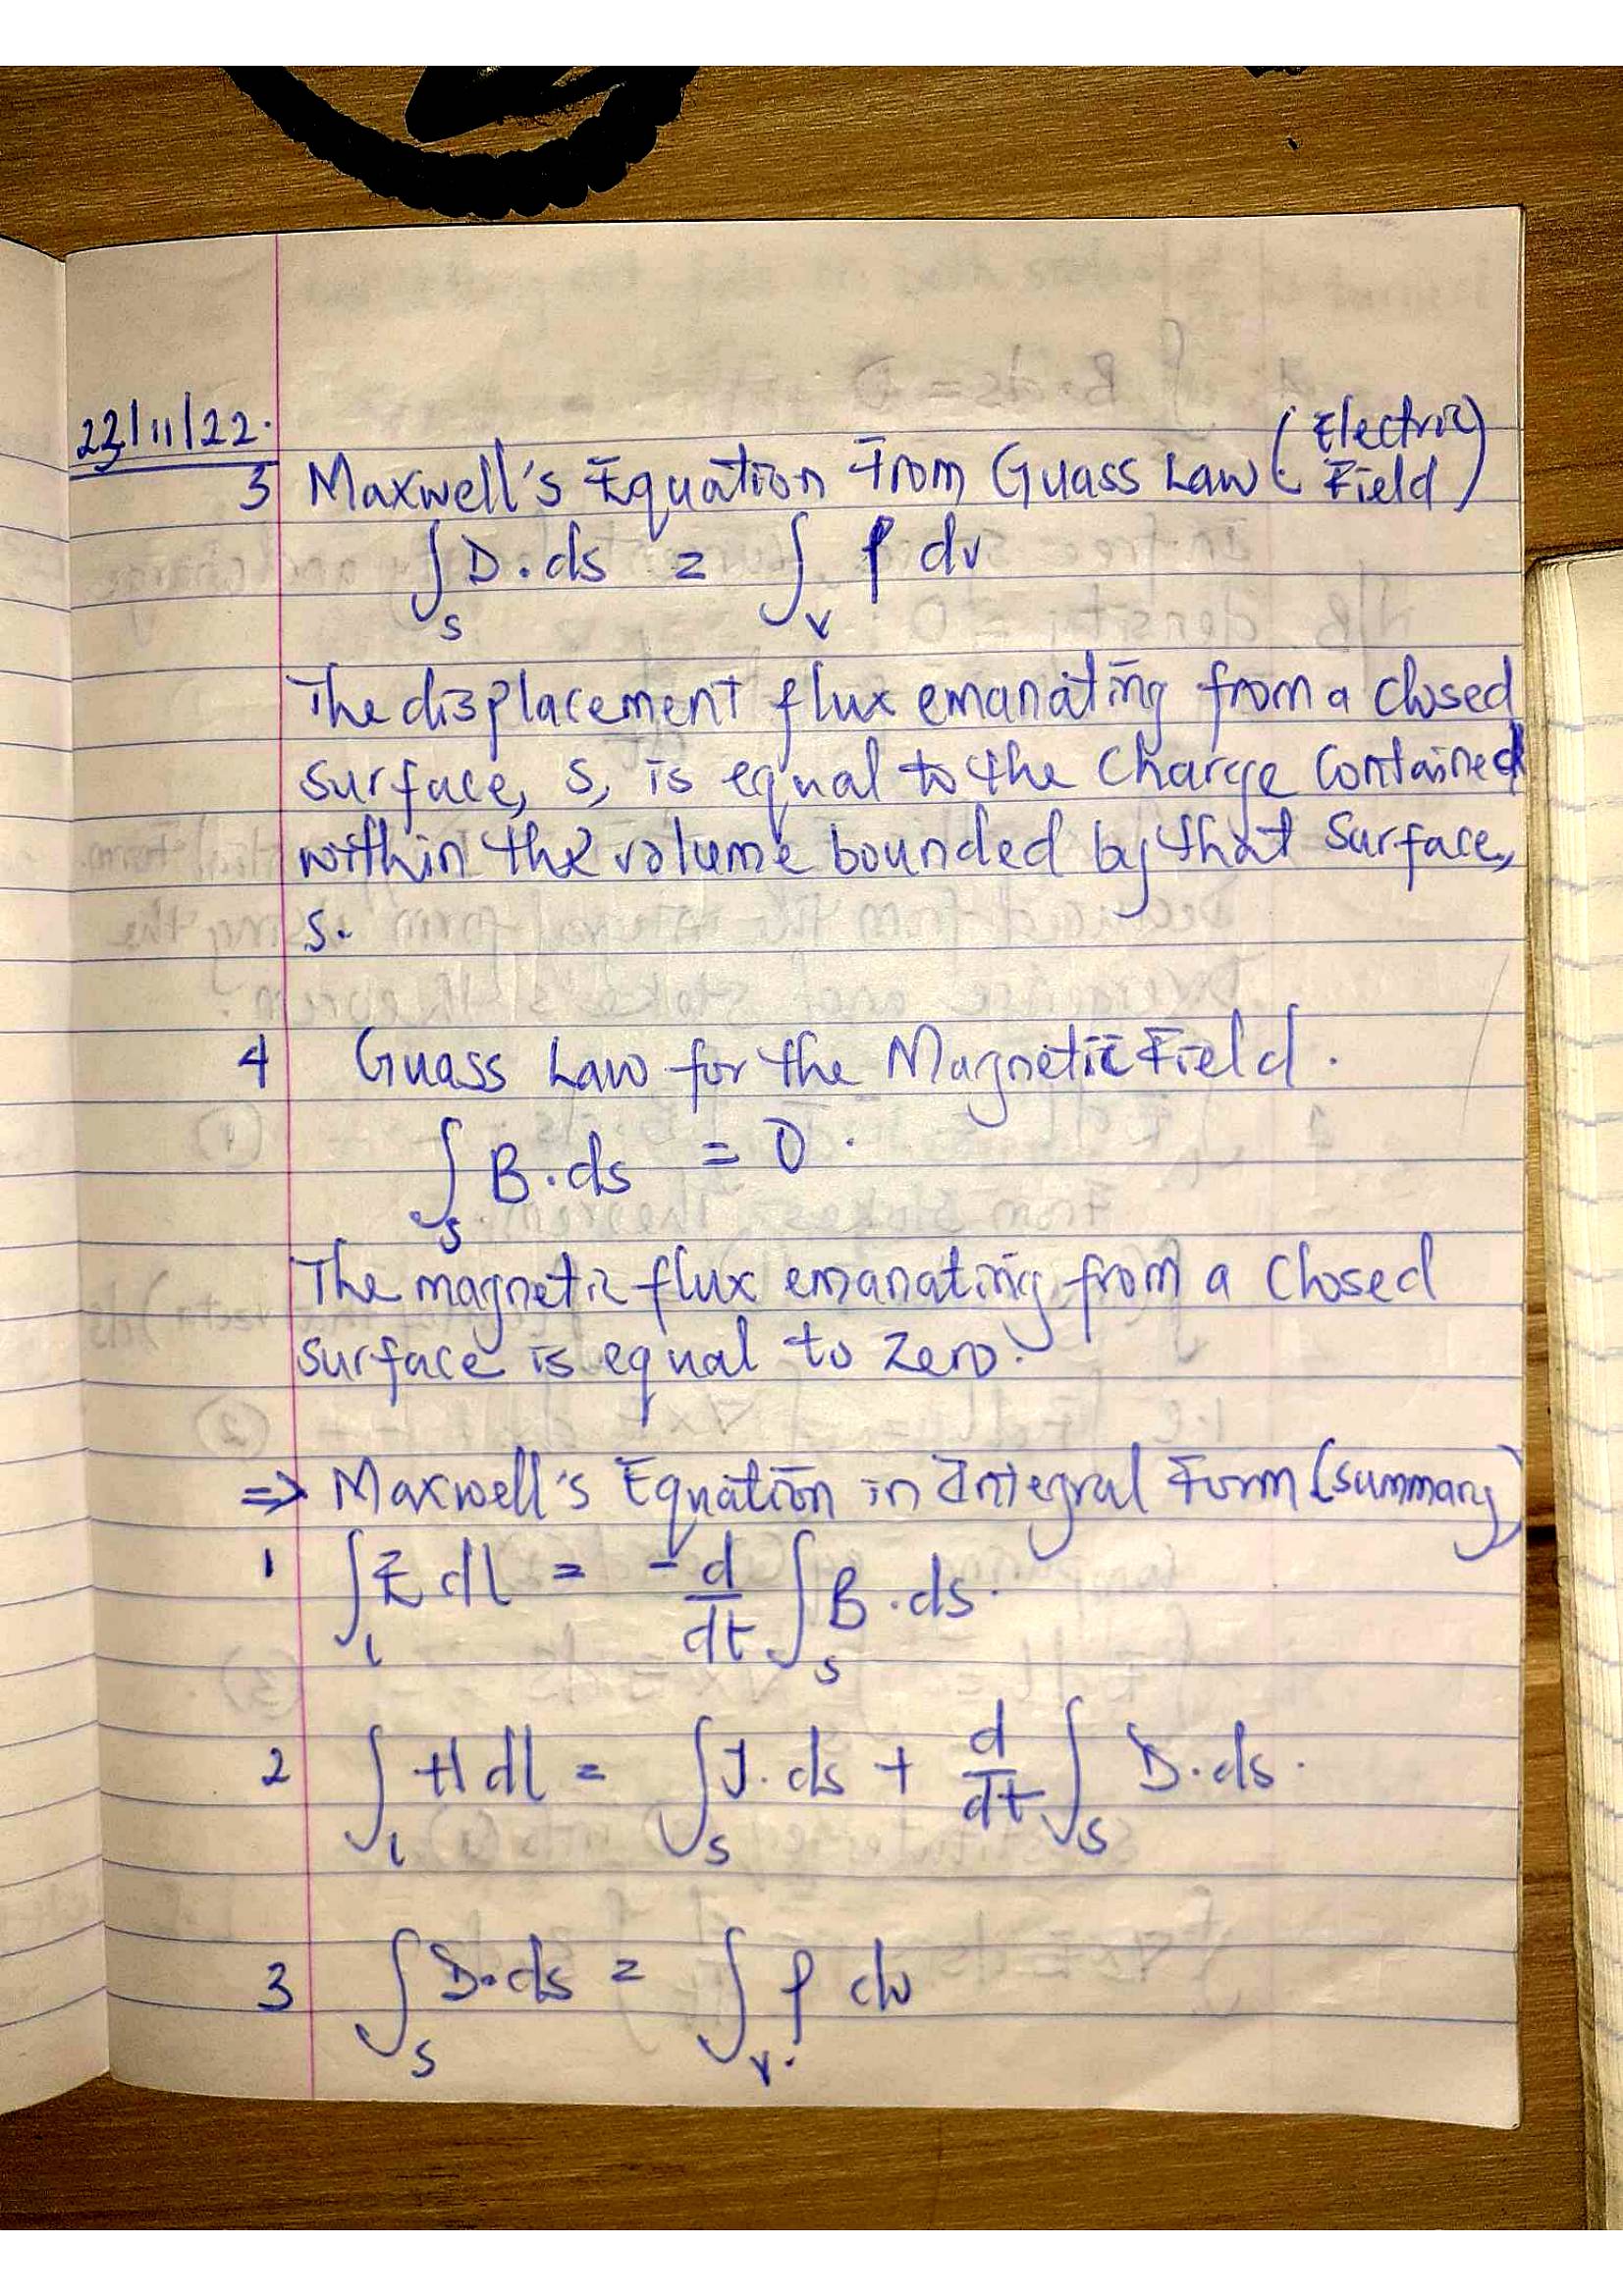 22/11/22.
3 Maxwell's Equation From Guass Law (Electric Field)
∫_S D.ds = ∫_V ρ dv
The displacement flux emanating from a closed
surface, s, is equal to the charge contained
within the volume bounded by that surface,
s.
4 Guass Law for the Magnetic Field.
∫_S B.ds = 0.
The magnetic flux emanating from a closed
surface is equal to zero.
⇒ Maxwell's Equation in Integral Form (summary)
1 ∫_l E dl = -d/dt ∫_S B.ds.
2 ∫_l H dl = ∫_S J.ds + d/dt ∫_S D.ds.
3 ∫_S D.ds = ∫_V. ρ dv